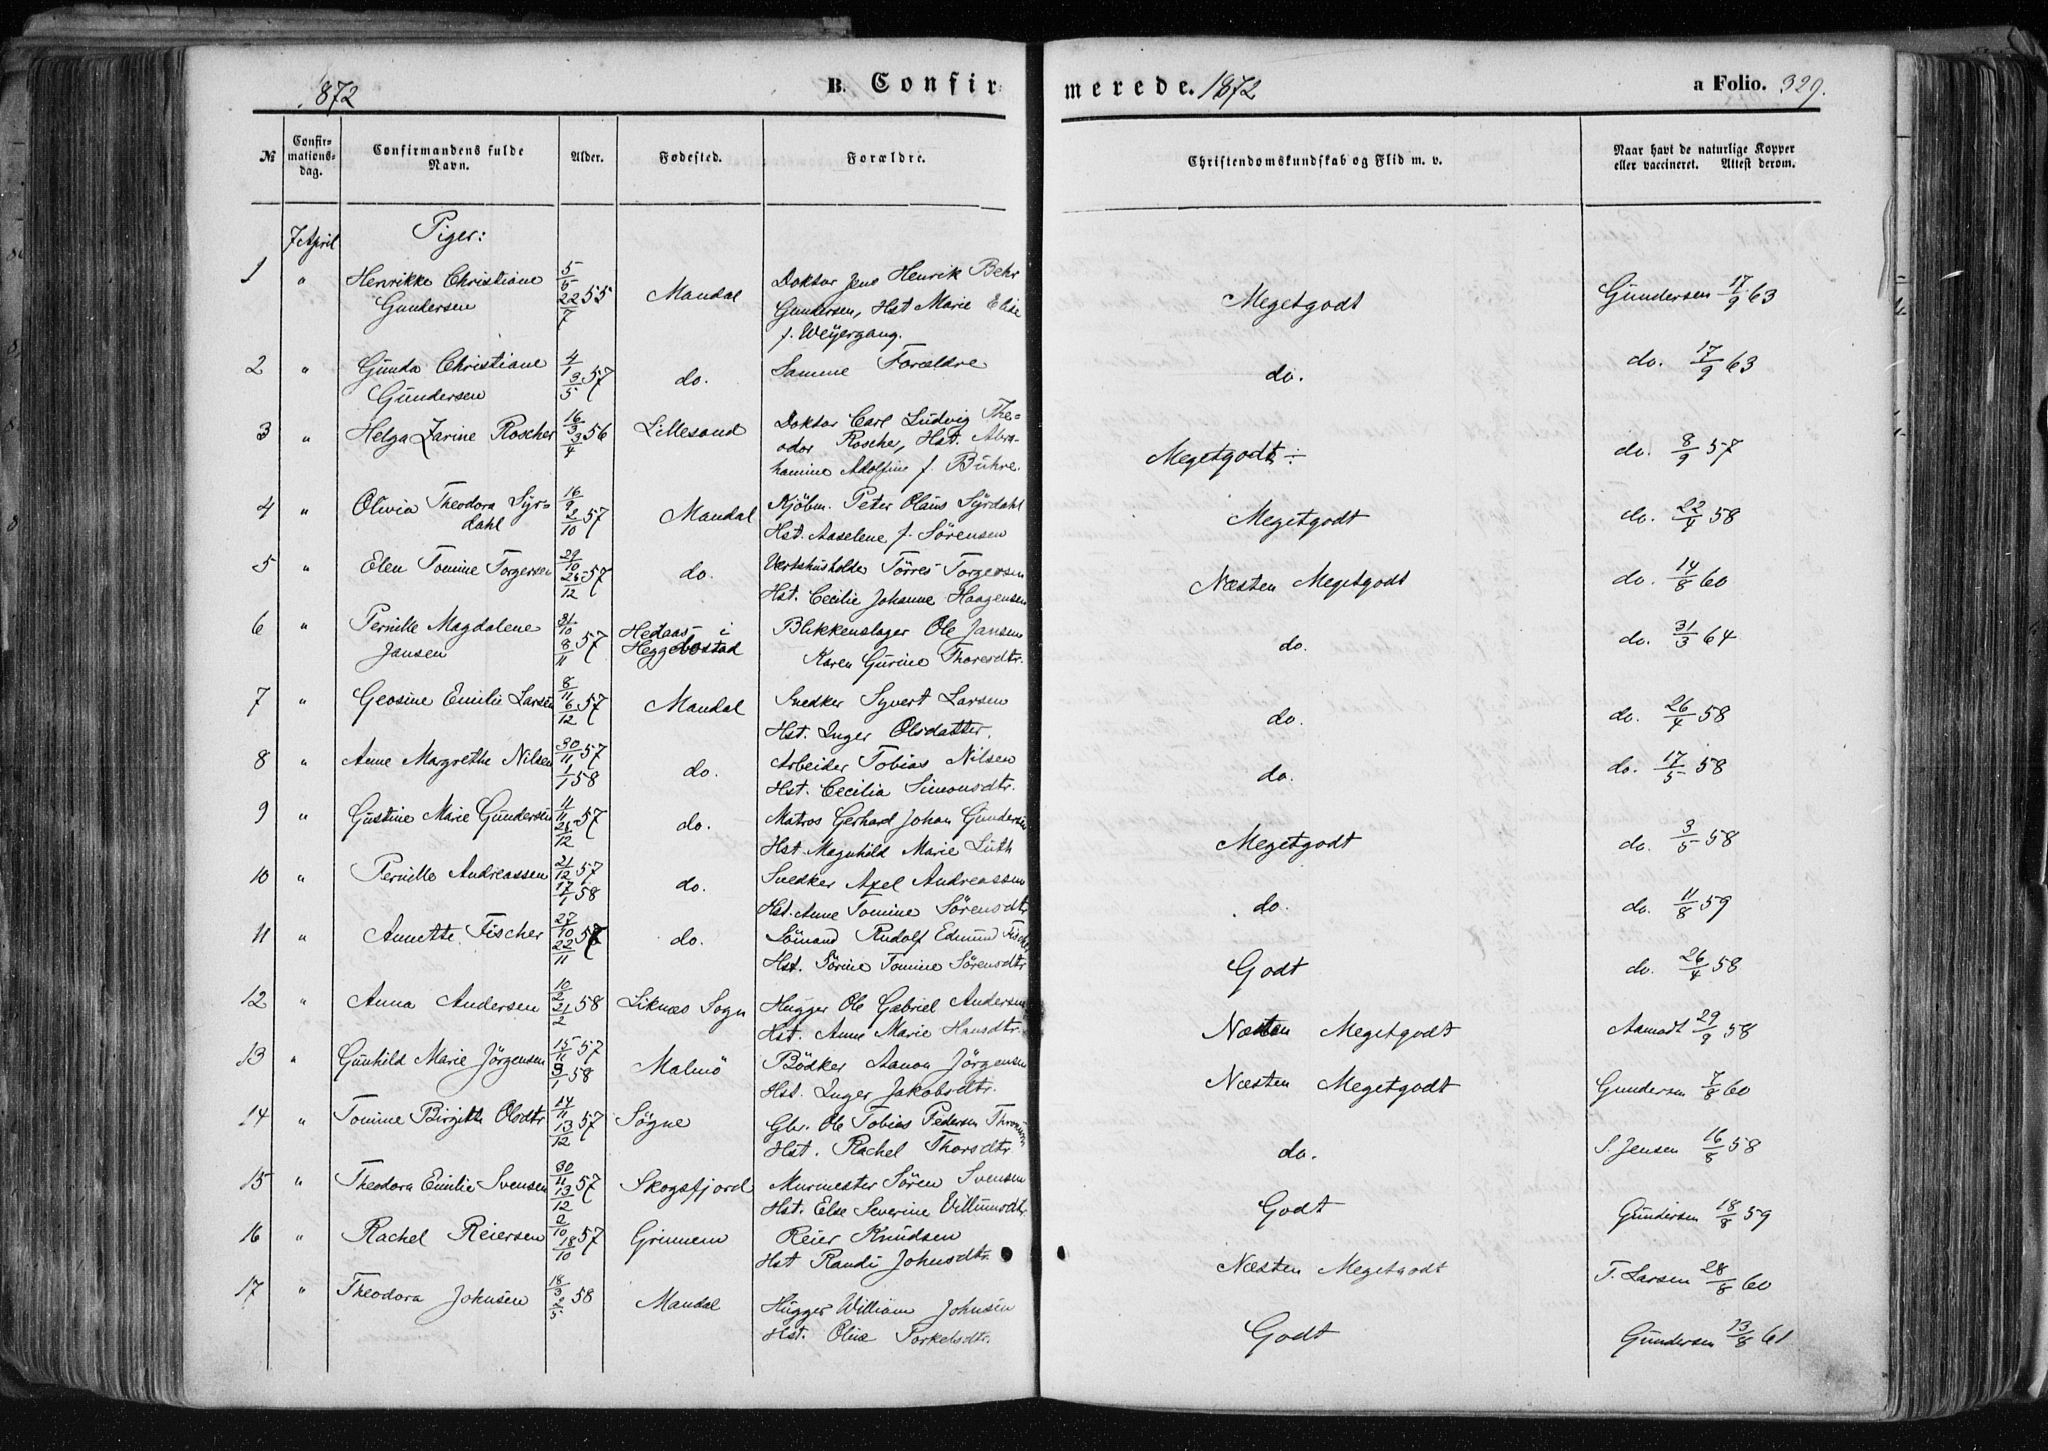 1872 B. Confirmerede. 1872 a Folio. 329.
№ Confirmationsdag. Confirmandens fulde Navn. Alder. Fødested. Forældre. Christendomskundskab og Flid m. v. Naar havt de naturlige Kopper eller vaccineret. Attest derom.
7 April Piger:
1 " Henrikke Christiane 5/5 Doktor Jens Henrik Behr
Gundersen 22/7 55 Mandal Gundersen, Hst Marie Elise Megetgodt Gundersen 17/9 63
f. Weyergang.
2 " Gunda Christiane 4/1 57 do. Samme Forældre do. do. 17/9 63
Gundersen 3/5
3 " Helga Zarine Roscher 16/3 56 Lillesand Doktor Carl Ludvig The=
3/4 odor Roscher, Hst. Abra- Megetgodt ÷ do. 8/9 57
hamine Adolfine f. Buhre.
4 " Olivia Theodora Syr= 16/9 57 Mandal Kjøbm. Peter Olaus Syrdahl Megetgodt do. 22/4 58
dahl 2/10 Hst. Aaselene f. Sörensen
5 " Elen Tomine Torgersen 29/10 57 do. Vertshusholder Törres Torgersen Næsten Megetgodt do. 14/8 60
26/12 Hst. Cecilie Johanne Haagensen
6 " Pernille Magdalene 31/10 57 Hedaas i Blikkenslager Ole Jansen do. do. 31/3 64
Jansen 8/11 Heggebostad Karen Gurine Thoresdtr.
7 " Geosine Emilie Larsen 8/11 57 Mandal Snedker Syvert Larsen do. do. 26/4 58
6/12 Hst. Inger Olsdatter.
8 " Anne Margrethe Nilsen 30/11 57 do. Arbeider Tobias Nilsen do. do. 17/5 58
1/1 58 Hst. Cecilia Simonsdtr.
9 " Gustine Marie Gundersen 11/11 57 do. Matros Gerhard Johan Gundersen Megetgodt do. 3/5 58
26/12 Hst. Magnhild Marie Luth
10 " Pernille Andreassen 21/12 57 do. Snedker Axel Andreassen do. do. 11/8 59
17/1 58 Hst. Anne Tomine Sörensdtr
11 " Annette Fischer 27/10 57 do. Sömand Rudolf Edmund Fischer Godt do. 26/4 58
22/11 Hst. Sörine Tomine Sörensdtr
12 " Anna Andersen 10/2 58 Liknæs Sogn Hugger Ole Gabriel Andersen Næsten Megetgodt Aamodt 29/9 58
21/2 Hst. Anne Marie Hansdtr.
13 " Gunhild Marie Jörgensen 15/11 57 Malmö Bödker Aanon Jörgensen Næsten Megetgodt Gundersen 7/8 60
3/1 58 Hst. Inger Jakobsdtr.
14 " Tomine Birgitte Olsdtr 14/11 57 Sögne Gbr. Ole Tobias Pedersen do. S. Jensen 16/8 58
13/12 Hst. Rachel Thorsdtr
15 " Theodora Emilie Svensen 30/11 57 Skogsfjord Murmester Sören Svensen Godt Gundersen 18/8 59
13/12 Hst. Else Severine Villumsdtr
16 " Rachel Reiersen 2/10 57 Grinnem Reier Knudsen Næsten Megetgodt T. Larsen 28/8 60
18/10 Hst Randi Johnsdtr.
17 " Theodora Johnsen 18/3 58 Mandal Hugger William Johnsen Godt Gundersen 13/8 61
2/5 Hst. Olive Torkelsdtr.